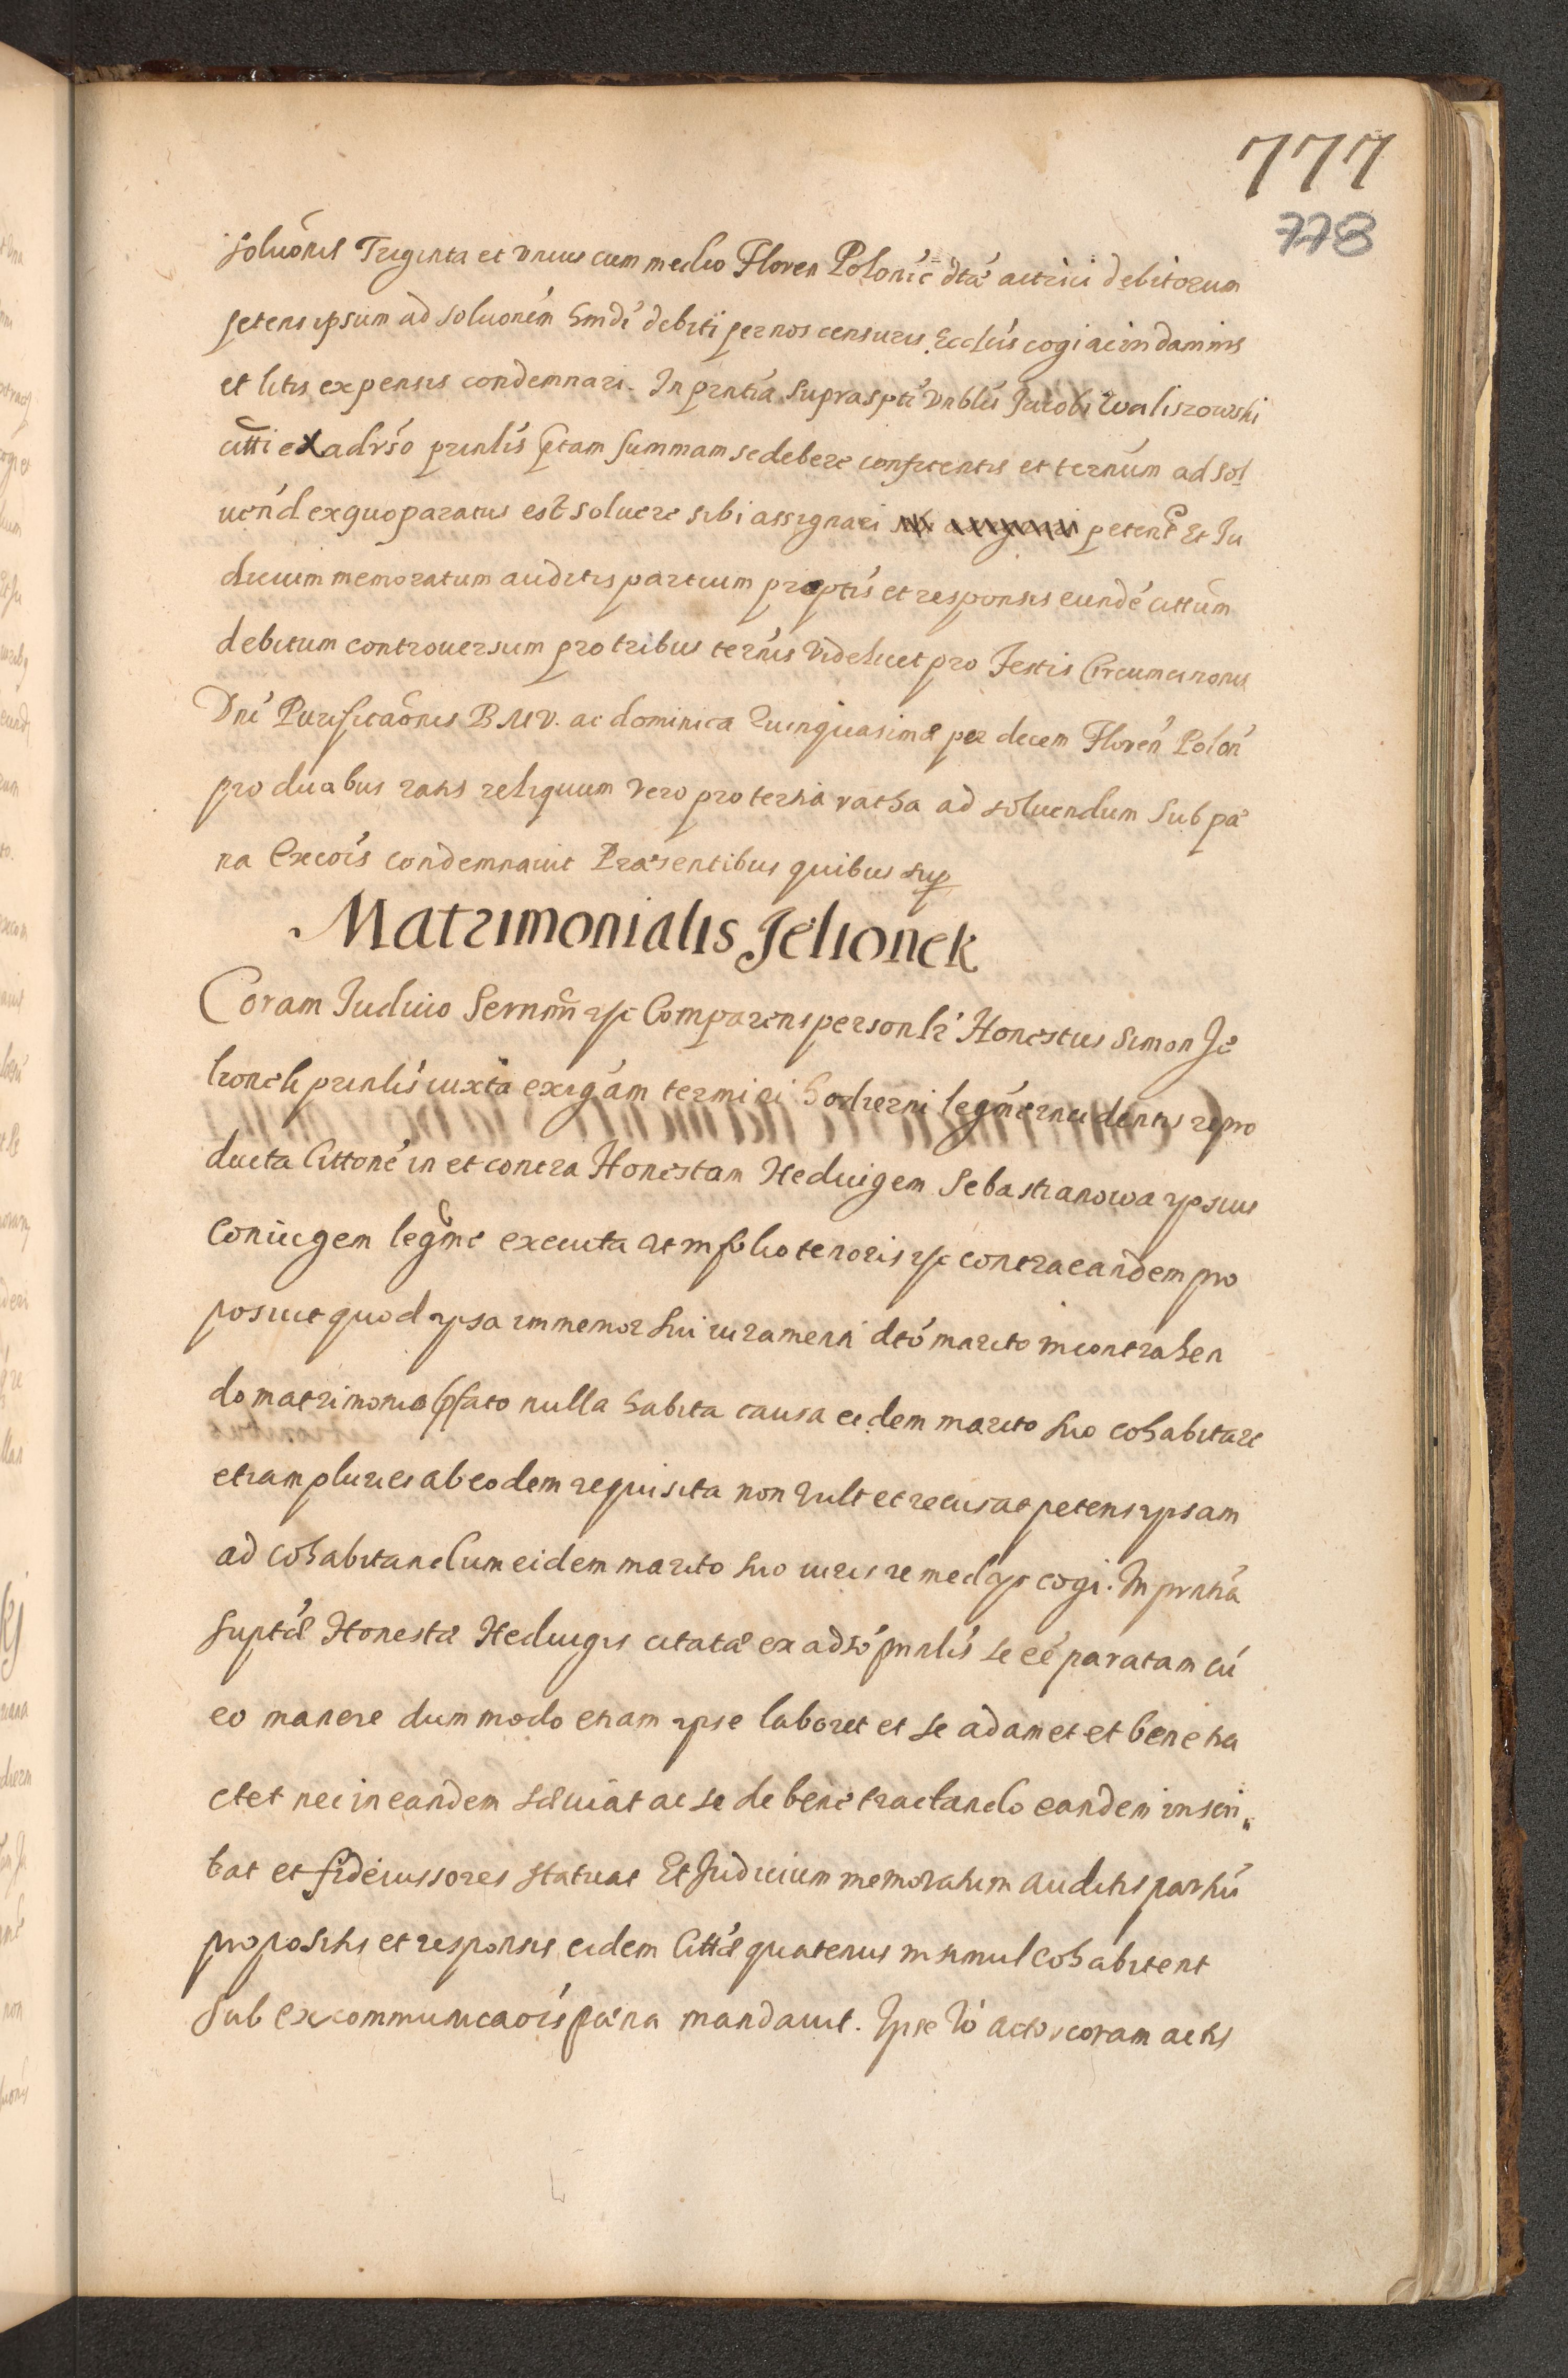 777
778
soluónis Triginta et vnius cum medio Floren Polonic dtæ actrici debitorum
petens ipsum ad soluoném hmdi debiti per nos censuris Ecclis cogi ac in damnis
et litis expensis condemnari. In prntia supraspti Vnblis Jacobi Waliszowski
citti ex adrso prnlis sptam summam se debere confitentis et ternum ad sol
uend ex quo paratus est soluere sibi assignari petent Et Ju
dicium memoratum auditis partium proptis et responsis eundé cittum
debitum controuersum pro tribus ternis videlicet pro Festis Circumcinonis
Dni Purificaonis B M V. ac dominica Quinquasimæ per decem Floren Polon
pro duabus ratis reliquum vero pro tertia ratha ad soluendum sub pæ
na Excois condemnauit Præsentibus quibus sup
Matrimonialis Jelionek
Coram Judicio Sernmi ipc Comparens personlr Honestus Simon Je
lionek prnlis iuxta exigám termini hodierni legme incidentis repro
ducta Cittoné in et contra Honestam Heduigem Sebastianowa ipsius
Coniugem legme executa et in folio tenoris ipc contra eandem pro
posuit quod ipsa immemor sui iuramenti dto marito in contrahen
do matrimonio pfato nulla habita causa eidem marito suo cohabitare
etiam pluries ab eodem requisita non vult et recusat petens ipsam
ad cohabitandum eidem marito suo iuris remedys cogi. In prntia
suptæ Honestæ Heduigis citatæ ex adso prnlis se eé paratam cú
eo manere dummodo etiam ipse laboret et se adamet et bene tra
ctet nec in eandem sæuiat ac se de bene tractando eandem inscri
bat et fideiussores statuat Et Judicium memoratum auditis partiú
propositis et responsis eidem Cittæ quatenus in simul cohabitent
sub excommunicaois pæna mandauit. Ipse vo actor coram actis